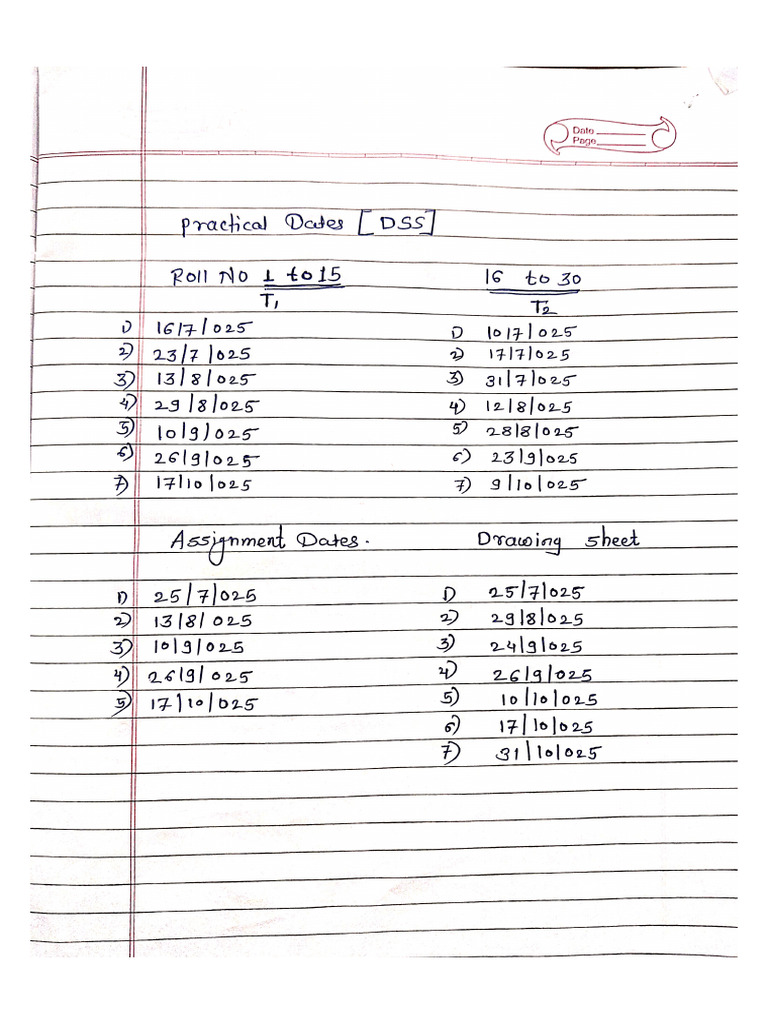 Date
Page
Practical Dates [DSS]
Roll No 1 to 15 16 to 30
T1 T2
1) 16/7/025 1) 10/7/025
2) 23/7/025 2) 17/7/025
3) 13/8/025 3) 31/7/025
4) 29/8/025 4) 12/8/025
5) 10/9/025 5) 28/8/025
6) 26/9/025 6) 23/9/025
7) 17/10/025 7) 9/10/025
Assignment Dates. Drawing sheet
1) 25/7/025 1) 25/7/025
2) 13/8/025 2) 29/8/025
3) 10/9/025 3) 24/9/025
4) 26/9/025 4) 26/9/025
5) 17/10/025 5) 10/10/025
6) 17/10/025
7) 31/10/025